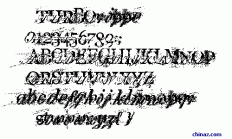 0123456789
ABCDEFGHIJKLMNOP
QRSTUVWXYZ
abcdefghijklmnopqr
stuvwxyz
chinaz.com